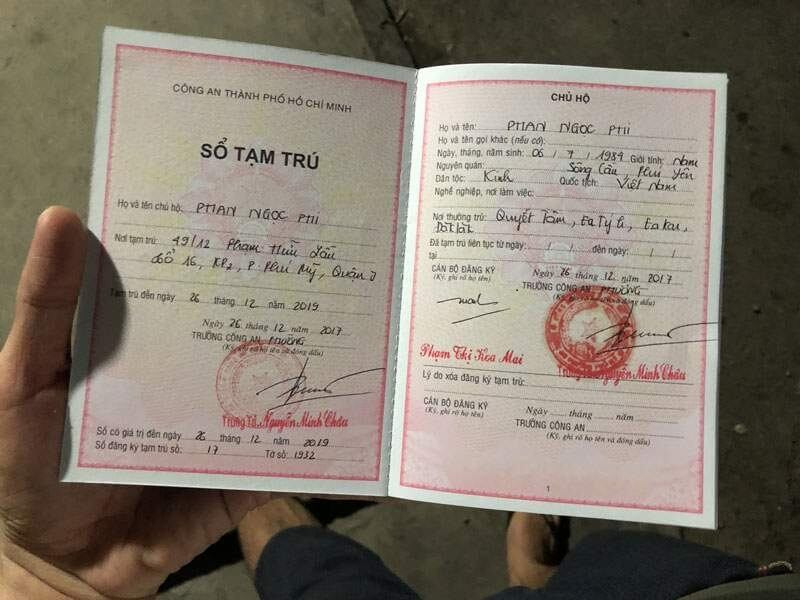 CÔNG AN THÀNH PHỐ HỒ CHÍ MINH
SỔ TẠM TRÚ
Họ và tên chủ hộ: PHAN NGỌC PHI
Nơi tạm trú: 49/12 Phạm Hữu Lầu
tổ 16, KP2, P. Phú Mỹ, Quận 7
Tạm trú đến ngày 26 tháng 12 năm 2019
Ngày 26 tháng 12 năm 2017
TRƯỞNG CÔNG AN PHƯỜNG
(Ký, ghi rõ họ tên và đóng dấu)
Trung Tá Nguyễn Minh Châu
Sổ có giá trị đến ngày 26 tháng 12 năm 2019
Số đăng ký tạm trú số: 17 Tờ số: 1932
CHỦ HỘ
Họ và tên: PHAN NGỌC PHI
Họ và tên gọi khác (nếu có):
Ngày, tháng, năm sinh: 06 / 7 / 1984 Giới tính: Nam
Nguyên quán: Sông Cầu, Phú Yên
Dân tộc: Kinh Quốc tịch: Việt Nam
Nghề nghiệp, nơi làm việc:
Nơi thường trú: Quyết Tâm, Ea Týh, Ea Kar,
Đắk Lắk
Đã tạm trú liên tục từ ngày: / / đến ngày: / /
tại
CÁN BỘ ĐĂNG KÝ
(Ký, ghi rõ họ tên)
Ngày 26 tháng 12 năm 2017
TRƯỞNG CÔNG AN PHƯỜNG
(Ký, ghi rõ họ tên và đóng dấu)
Phạm Thị Hoa Mai
Trung Tá Nguyễn Minh Châu
Lý do xóa đăng ký tạm trú:
CÁN BỘ ĐĂNG KÝ
(Ký, ghi rõ họ tên)
Ngày ..... tháng ..... năm .....
TRƯỞNG CÔNG AN
(Ký, ghi rõ họ tên và đóng dấu)
1